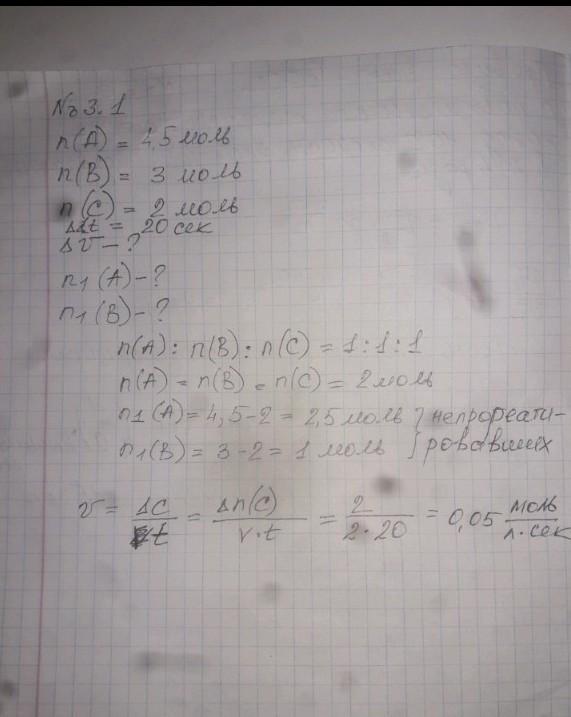 № 3.1
n(A) = 4,5 моль
n(B) = 3 моль
n(C) = 2 моль
Δt = 20 сек
υ - ?
n₁(A) - ?
n₁(B) - ?
n(A) : n(B) : n(C) = 1 : 1 : 1
n(A) = n(B) = n(C) = 2 моль
n₁(A) = 4,5 - 2 = 2,5 моль } непрореаги-
n₁(B) = 3 - 2 = 1 моль } ровавших
υ = ΔC/t = Δn(C)/V·t = 2/2·20 = 0,05 моль/л·сек